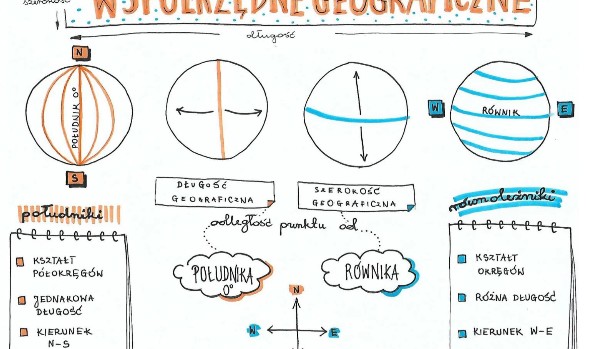 szerokość
WSPÓŁRZĘDNE GEOGRAFICZNE
długość
N
POŁUDNIK 0°
S
W
RÓWNIK
E
DŁUGOŚĆ
GEOGRAFICZNA
SZEROKOŚĆ
GEOGRAFICZNA
odległość punktu od
POŁUDNIKA
0°
RÓWNIKA
południki
KSZTAŁT
PÓŁOKRĘGÓW
JEDNAKOWA
DŁUGOŚĆ
KIERUNEK
N-S
N
W
E
równoleżniki
KSZTAŁT
OKRĘGÓW
RÓŻNA DŁUGOŚĆ
KIERUNEK W-E